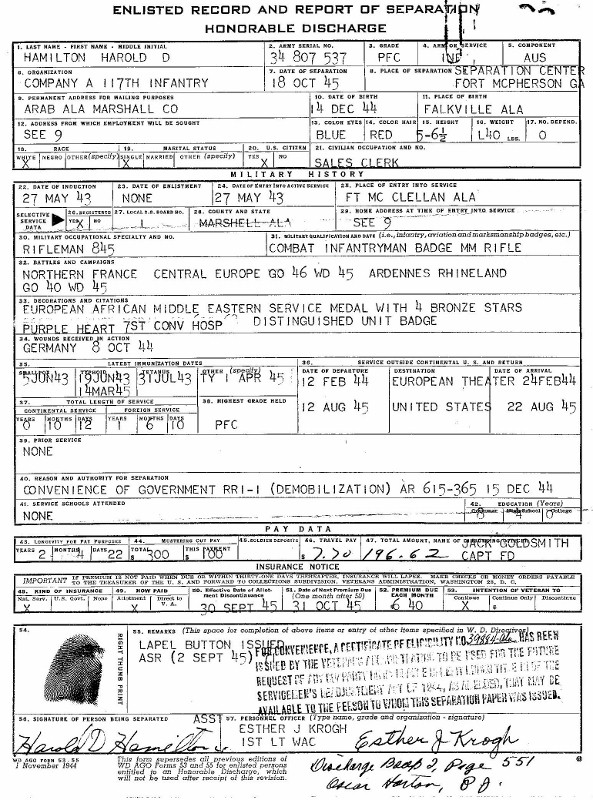 ENLISTED RECORD AND REPORT OF SEPARATION
HONORABLE DISCHARGE
1. LAST NAME - FIRST NAME - MIDDLE INITIAL 2. ARMY SERIAL NO. 3. GRADE 4. ARM OR SERVICE 5. COMPONENT
HAMILTON HAROLD D 34 807 537 PFC INF AUS
6. ORGANIZATION 7. DATE OF SEPARATION 8. PLACE OF SEPARATION SEPARATION CENTER
COMPANY A 117TH INFANTRY 18 OCT 45 FORT MCPHERSON GA
9. PERMANENT ADDRESS FOR MAILING PURPOSES 10. DATE OF BIRTH 11. PLACE OF BIRTH
ARAB ALA MARSHALL CO 14 DEC 44 FALKVILLE ALA
12. ADDRESS FROM WHICH EMPLOYMENT WILL BE SOUGHT 13. COLOR EYES 14. COLOR HAIR 15. HEIGHT 16. WEIGHT 17. NO. DEPEND.
SEE 9 BLUE RED 5-6½ 140 LBS. 0
18. RACE 19. MARITAL STATUS 20. U.S. CITIZEN 21. CIVILIAN OCCUPATION AND NO.
WHITE NEGRO OTHER (specify) SINGLE MARRIED OTHER (specify) YES NO
X X X SALES CLERK
MILITARY HISTORY
22. DATE OF INDUCTION 23. DATE OF ENLISTMENT 24. DATE OF ENTRY INTO ACTIVE SERVICE 25. PLACE OF ENTRY INTO SERVICE
27 MAY 43 NONE 27 MAY 43 FT MC CLELLAN ALA
SELECTIVE SERVICE DATA 26. REGISTERED 27. LOCAL S.S. BOARD NO. 28. COUNTY AND STATE 29. HOME ADDRESS AT TIME OF ENTRY INTO SERVICE
YES NO X MARSHELL ALA SEE 9
30. MILITARY OCCUPATIONAL SPECIALTY AND NO. 31. MILITARY QUALIFICATION AND DATE (i.e., infantry, aviation and marksmanship badges, etc.)
RIFLEMAN 845 COMBAT INFANTRYMAN BADGE MM RIFLE
32. BATTLES AND CAMPAIGNS
NORTHERN FRANCE CENTRAL EUROPE GO 46 WD 45 ARDENNES RHINELAND
GO 40 WD 45
33. DECORATIONS AND CITATIONS
EUROPEAN AFRICAN MIDDLE EASTERN SERVICE MEDAL WITH 4 BRONZE STARS
PURPLE HEART 7ST CONV HOSP DISTINGUISHED UNIT BADGE
34. WOUNDS RECEIVED IN ACTION
GERMANY 8 OCT 44
35. LATEST IMMUNIZATION DATES 36. SERVICE OUTSIDE CONTINENTAL U.S. AND RETURN
SMALLPOX TYPHOID TETANUS OTHER (specify) DATE OF DEPARTURE DESTINATION DATE OF ARRIVAL
5JUN43 19JUN43 31JUL43 TY 1 APR 45 12 FEB 44 EUROPEAN THEATER 24FEB44
14MAR45
37. TOTAL LENGTH OF SERVICE 38. HIGHEST GRADE HELD 12 AUG 45 UNITED STATES 22 AUG 45
CONTINENTAL SERVICE FOREIGN SERVICE
YEARS MONTHS DAYS YEARS MONTHS DAYS
0 10 12 1 6 10 PFC
39. PRIOR SERVICE
NONE
40. REASON AND AUTHORITY FOR SEPARATION
CONVENIENCE OF GOVERNMENT RR1-1 (DEMOBILIZATION) AR 615-365 15 DEC 44
41. SERVICE SCHOOLS ATTENDED 42. EDUCATION (Years)
NONE Grammar High School College
8 4 0
PAY DATA
43. LONGEVITY FOR PAY PURPOSES 44. MUSTERING OUT PAY 45. SOLDIER DEPOSITS 46. TRAVEL PAY 47. TOTAL AMOUNT, NAME OF JACK GOLDSMITH
YEARS 2 MONTHS 4 DAYS 22 TOTAL $300 THIS PAYMENT $100 $7.70 196.62 CAPT FD
INSURANCE NOTICE
IMPORTANT IF PREMIUM IS NOT PAID WHEN DUE OR WITHIN THIRTY-ONE DAYS THEREAFTER, INSURANCE WILL LAPSE. MAKE CHECKS OR MONEY ORDERS PAYABLE
TO THE TREASURER OF THE U.S. AND FORWARD TO COLLECTIONS SUBDIVISION, VETERANS ADMINISTRATION, WASHINGTON 25, D.C.
48. KIND OF INSURANCE 49. HOW PAID 50. Effective Date of Allotment Discontinuance 51. Date of Next Premium Due (One month after 50) 52. PREMIUM DUE EACH MONTH 53. INTENTION OF VETERAN TO
Nat. Serv. U.S. Govt. None Allotment Direct to V.A. Continue Continue Only Discontinue
X X 30 SEPT 45 31 OCT 45 $6 40 X
54. RIGHT THUMB PRINT
55. REMARKS (This space for completion of above items or entry of other items specified in W. D. Directives)
LAPEL BUTTON ISSUED
ASR (2 SEPT 45)
FOR CONVENIENCE, A CERTIFICATE OF ELIGIBILITY NO. HAS BEEN
ISSUED BY THE VETERANS TO BE USED FOR THE FUTURE
REQUEST OF
SERVICEMEN'S READJUSTMENT ACT OF 1944, AS AMENDED, THAT MAY BE
AVAILABLE TO THE PERSON TO WHOM THIS SEPARATION PAPER WAS ISSUED.
56. SIGNATURE OF PERSON BEING SEPARATED ASST 57. PERSONNEL OFFICER (Type name, grade and organization - signature)
Harold D Hamilton ESTHER J KROGH
1ST LT WAC Esther J. Krogh
WD AGO FORM 53-55
1 November 1944
This form supersedes all previous editions of
WD AGO Forms 53 and 55 for enlisted persons
entitled to an Honorable Discharge, which
will not be used after receipt of this revision.
Discharge Book 2, Page 551
Oscar Horton, P. J.